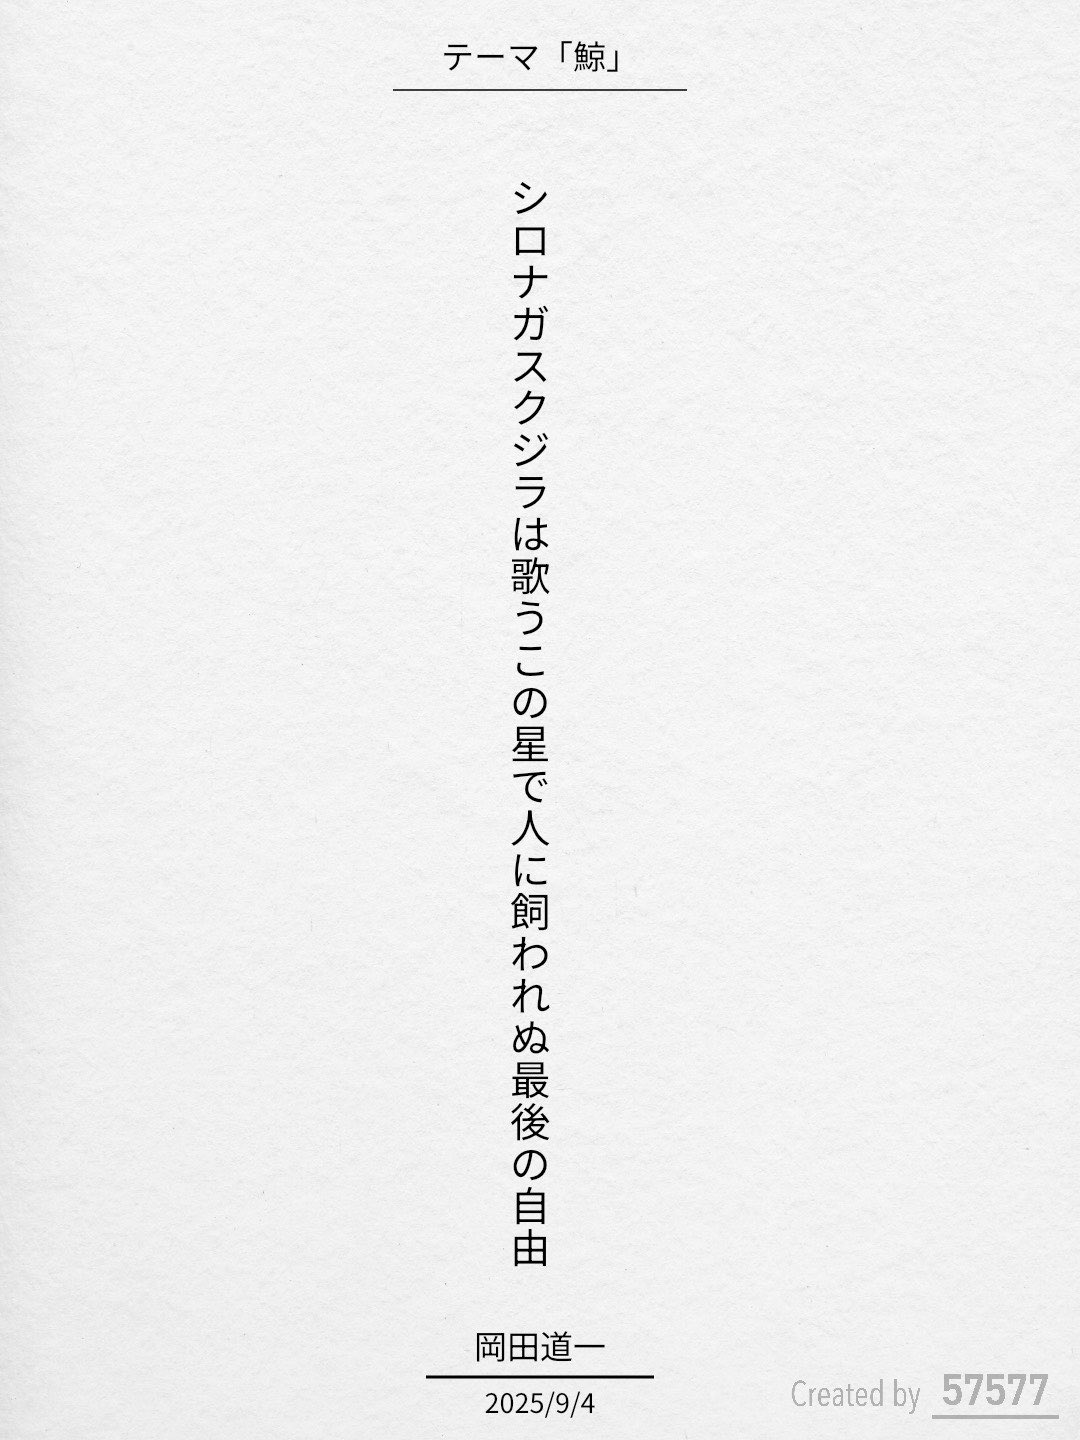 テーマ「鯨」
シロナガスクジラは歌うこの星で人に飼われぬ最後の自由
岡田道一
2025/9/4
Created by 57577